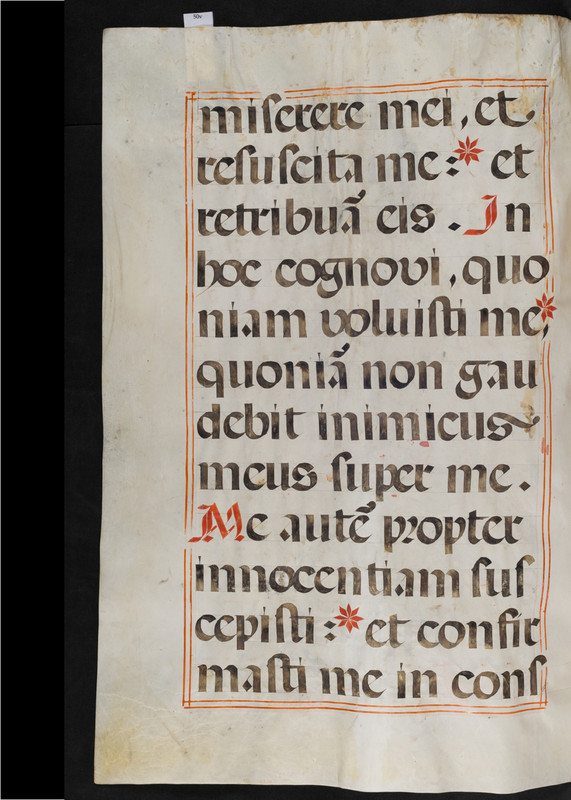 50v
miserere mei, et
resuscita me:* et
retribuã eis. In
hoc cognovi, quo
niam voluisti me,*
quoniã non gau
debit inimicus
meus super me.
Me autẽ propter
innocentiam sus
cepisti:* et confir
masti me in cons